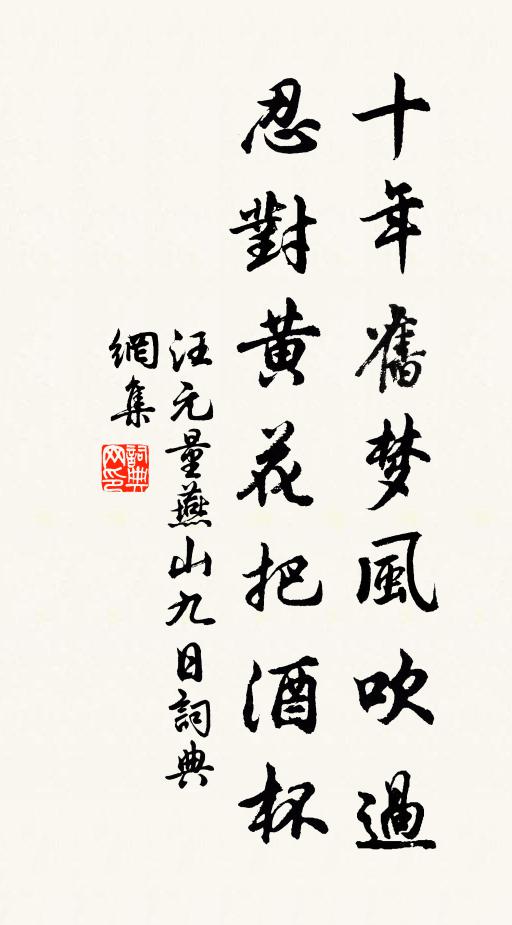 十年舊梦風吹過
忍對黄花把酒杯
汪元量燕山九日詞典
網集
詞典网印